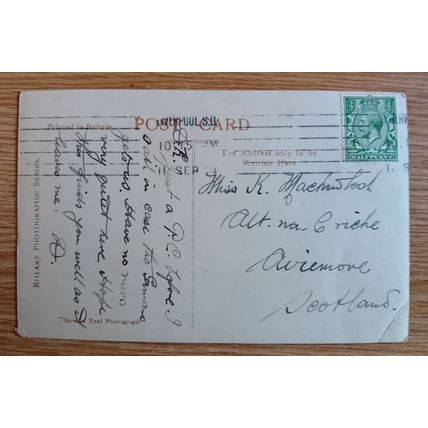 LIVERPOOL S.O.
POST CARD
10 15 PM
SEP
Printed in Britain
The Address only to be
Written Here
HALFPENNY
ROTARY PHOTOGRAPHIC SERIES.
This is a Real Photograph
Dr K.
Just a P.C. before I
sail in case the Germans
gets us. Have no news
very quiet here. Hope
this finds you well as I
leave me.
Miss K. Mackintosh
Alt. na. Criche
Aviemore
Scotland.